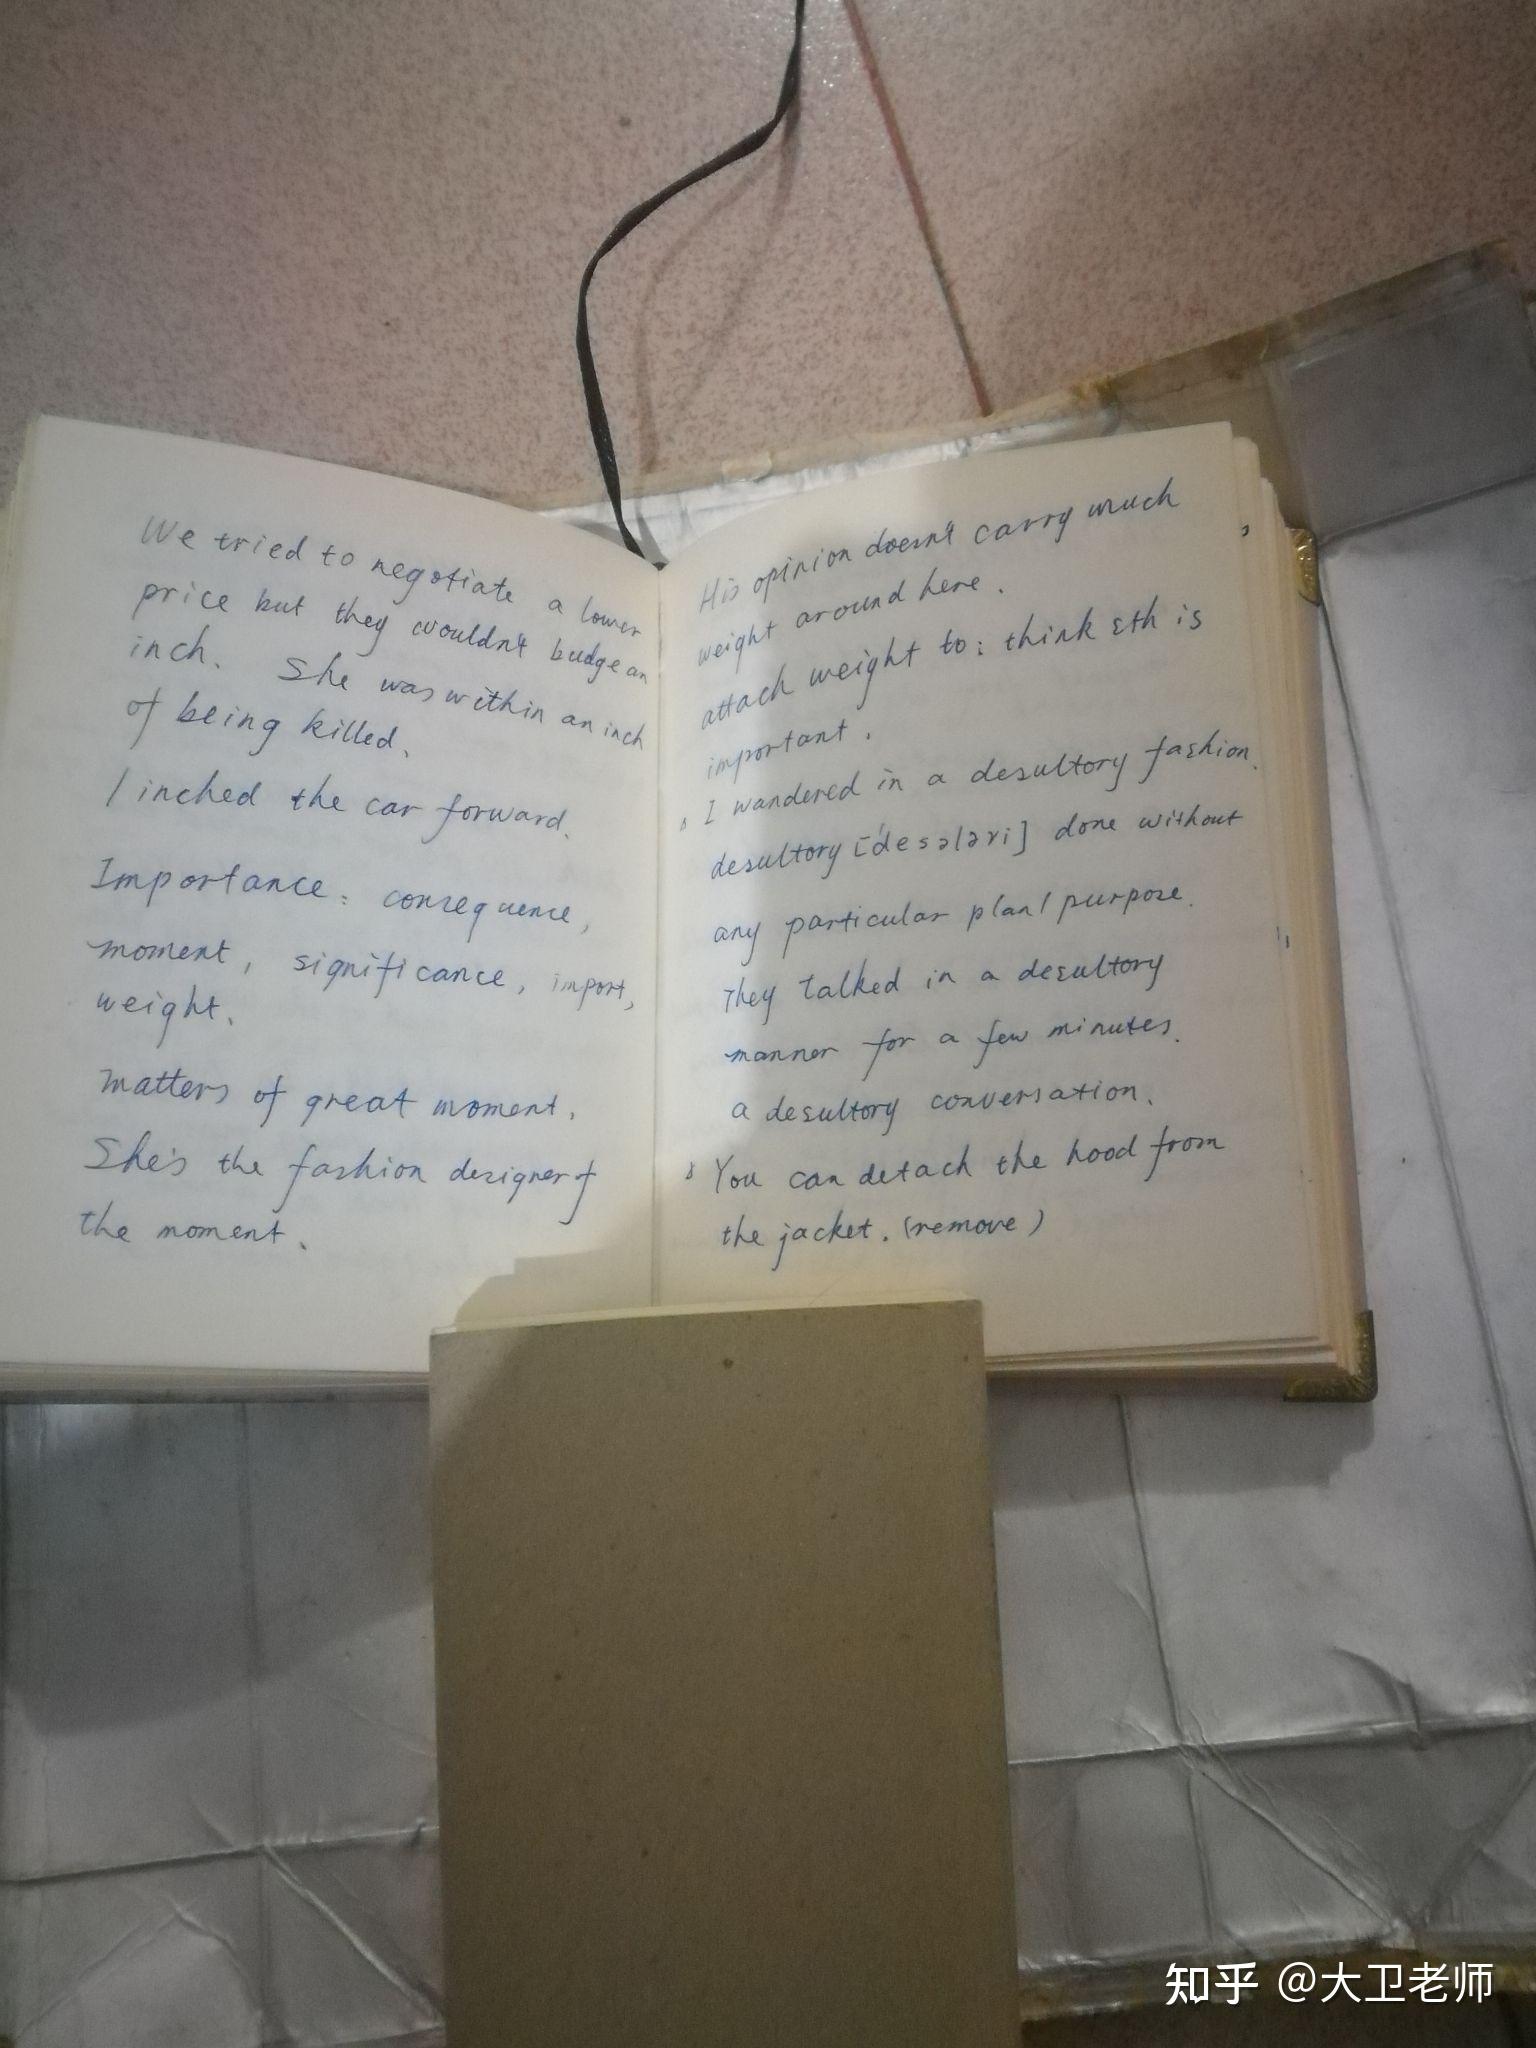 We tried to negotiate a lower
price but they wouldn't budge an
inch. She was within an inch
of being killed.
I inched the car forward.
Importance: consequence,
moment, significance, import,
weight.
matters of great moment.
She's the fashion designer of
the moment.
His opinion doesn't carry much
weight around here.
attach weight to: think sth is
important.
I wandered in a desultory fashion.
desultory ['desəlləri] done without
any particular plan/purpose.
They talked in a desultory
manner for a few minutes.
a desultory conversation.
You can detach the hood from
the jacket. (remove)
知乎 @大卫老师